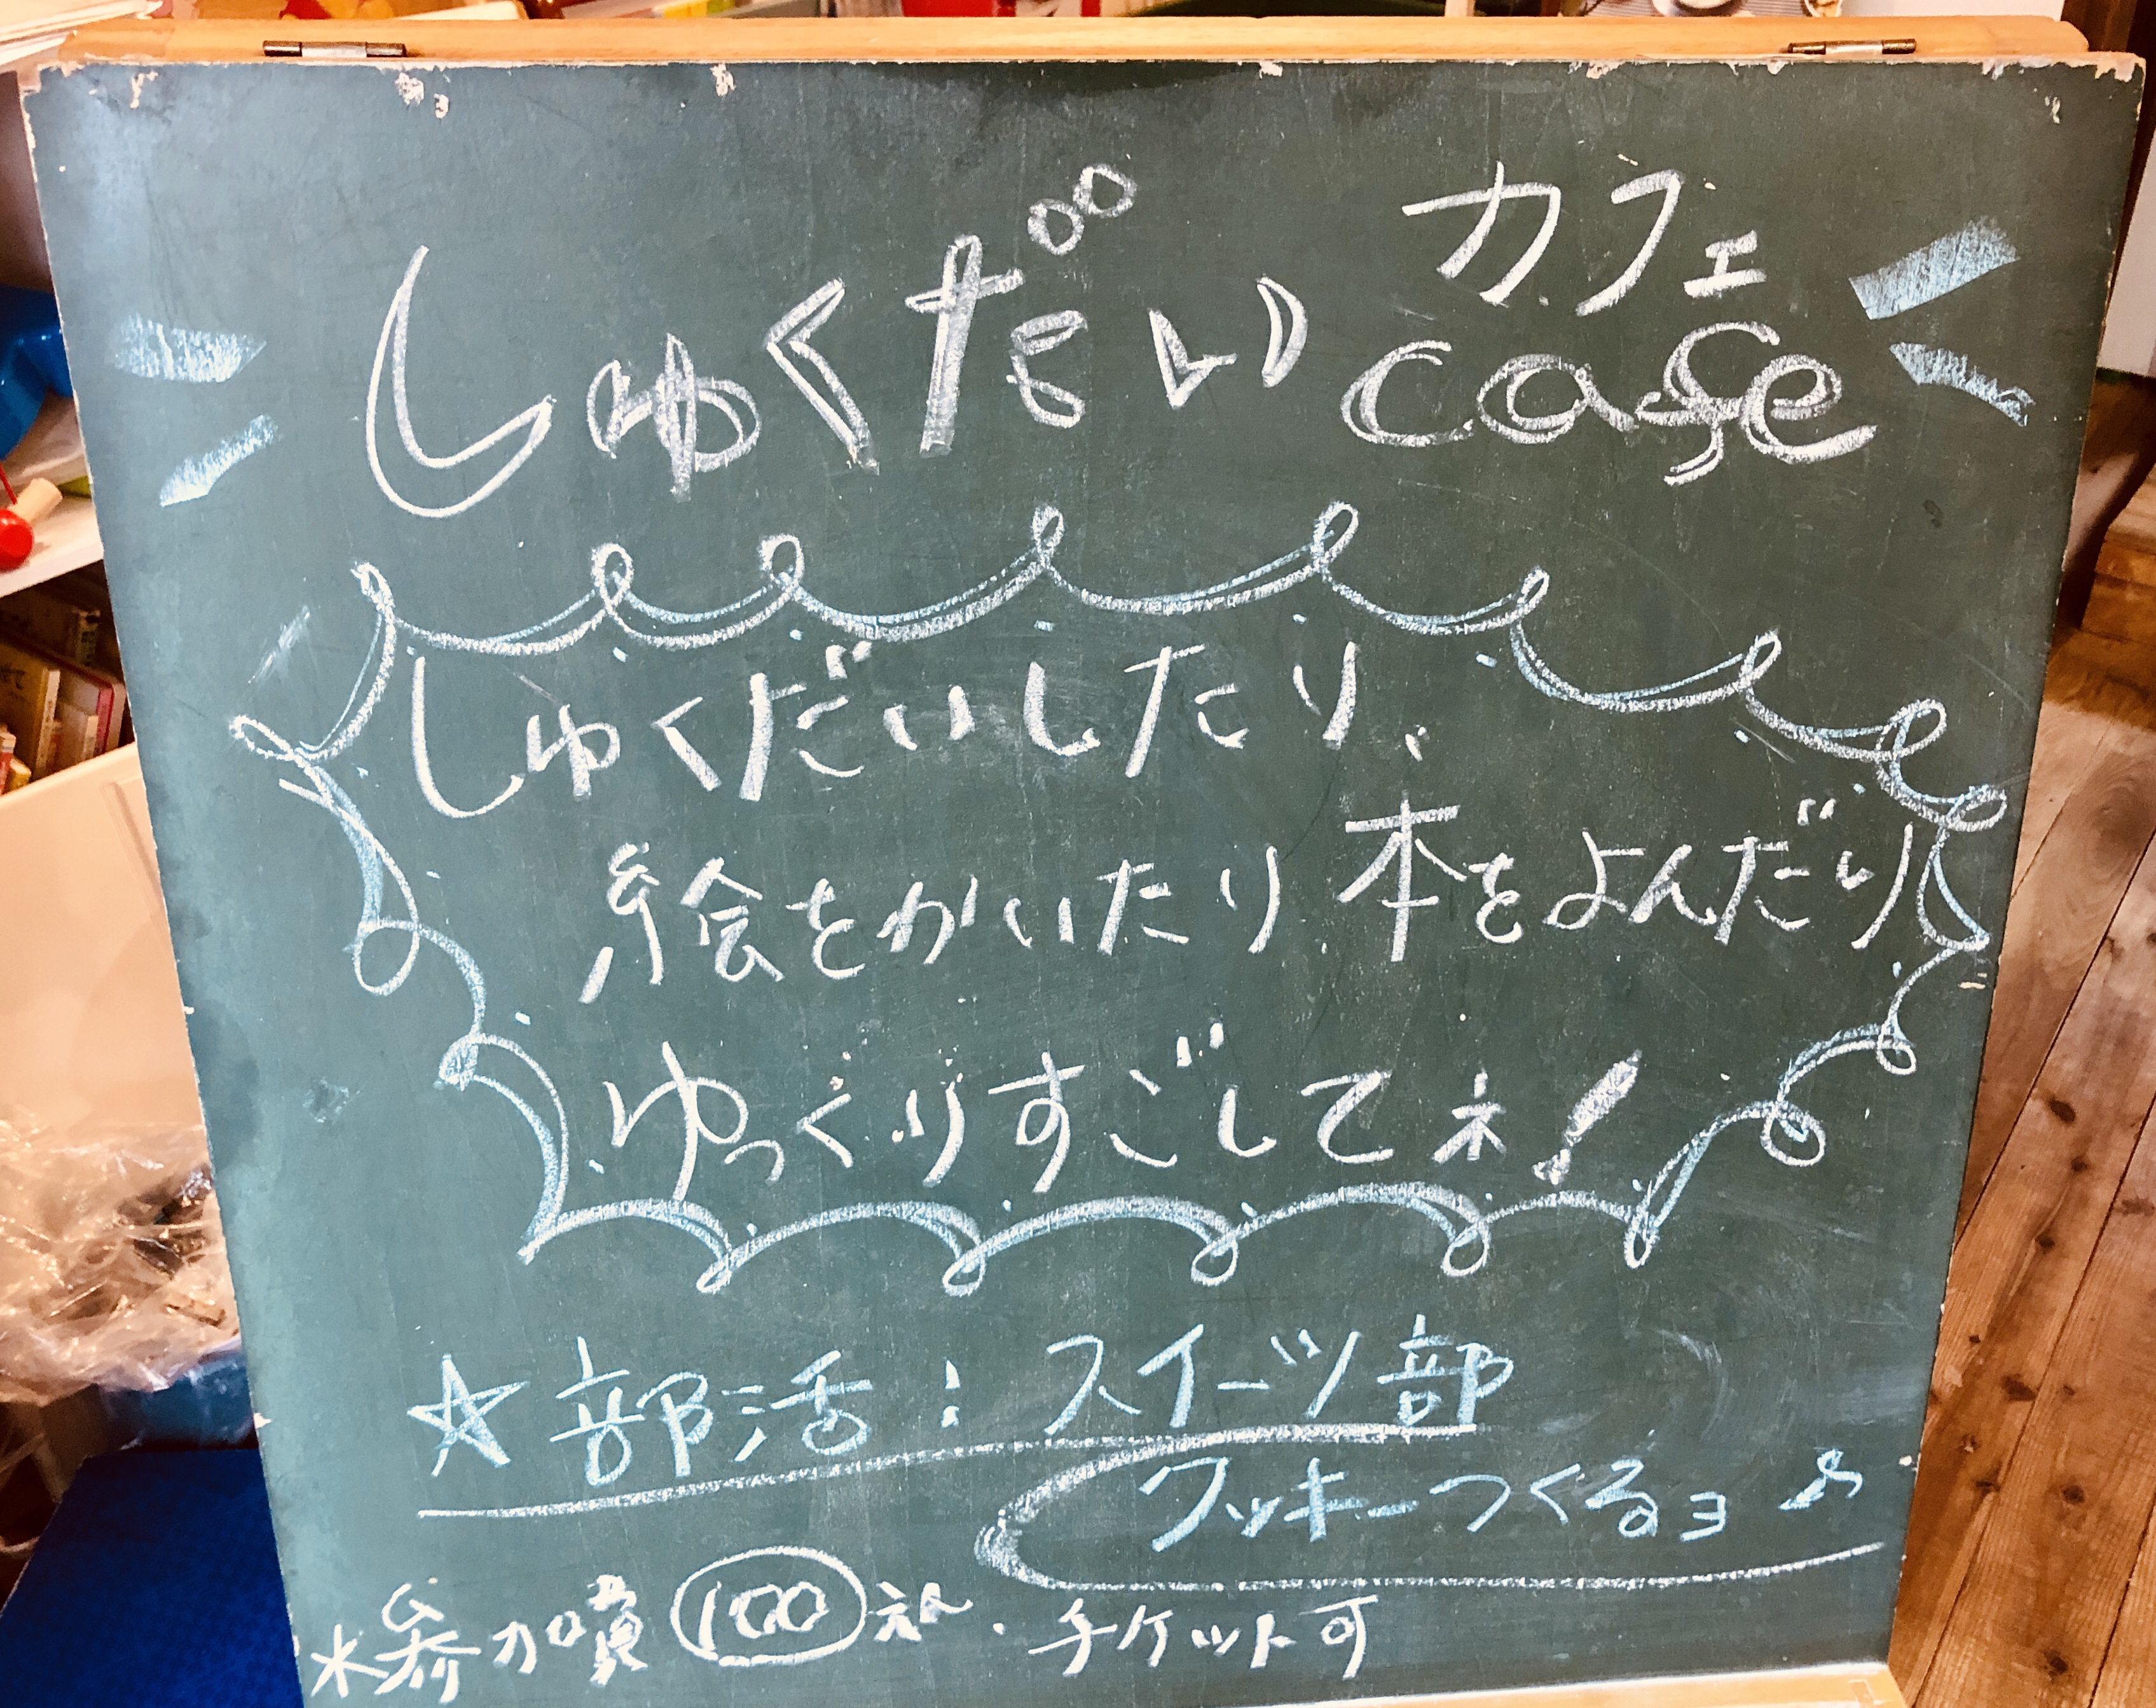 しゅくだい cafe
カフェ
しゅくだいしたり、
絵をかいたり、本をよんだり
ゆっくりすごしてネ!
☆部活:スイーツ部
クッキーつくるヨ♪
*参加費 100 チケット可